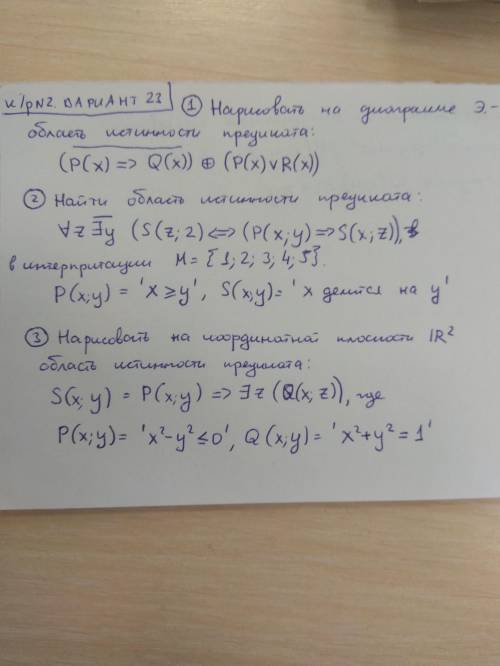 к/р N2. ВАРИАНТ 23 ① Нарисовать на диаграмме Э.-
область истинности предиката:
(P(x) => Q(x)) ⊕ (P(x) ∨ R(x))
② Найти область истинности предиката:
∀z ∃y (S(z; 2) <=> (P(x; y) => S(x; z)),
в интерпритации M = {1; 2; 3; 4; 5}.
P(x; y) = 'x ≥ y', S(x; y) = 'x делится на y'
③ Нарисовать на координатной плоскости IR²
область истинности предиката:
S(x; y) = P(x; y) => ∃z (Q(x; z)), где
P(x; y) = 'x² - y² ≤ 0', Q(x; y) = 'x² + y² = 1'